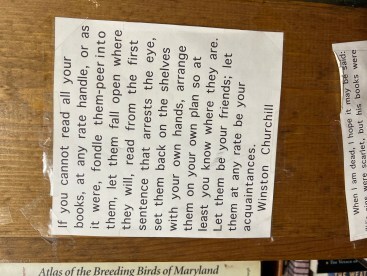 If you cannot read all your
books, at any rate handle, or as
it were, fondle them-peer into
them, let them fall open where
they will, read from the first
sentence that arrests the eye,
set them back on the shelves
with your own hands, arrange
them on your own plan so at
least you know where they are.
Let them be your friends; let
them at any rate be your
acquaintances.
Winston Churchill
When I am dead, I hope it may be said:
were scarlet, but his books were
Atlas of the Breeding Birds of Maryland